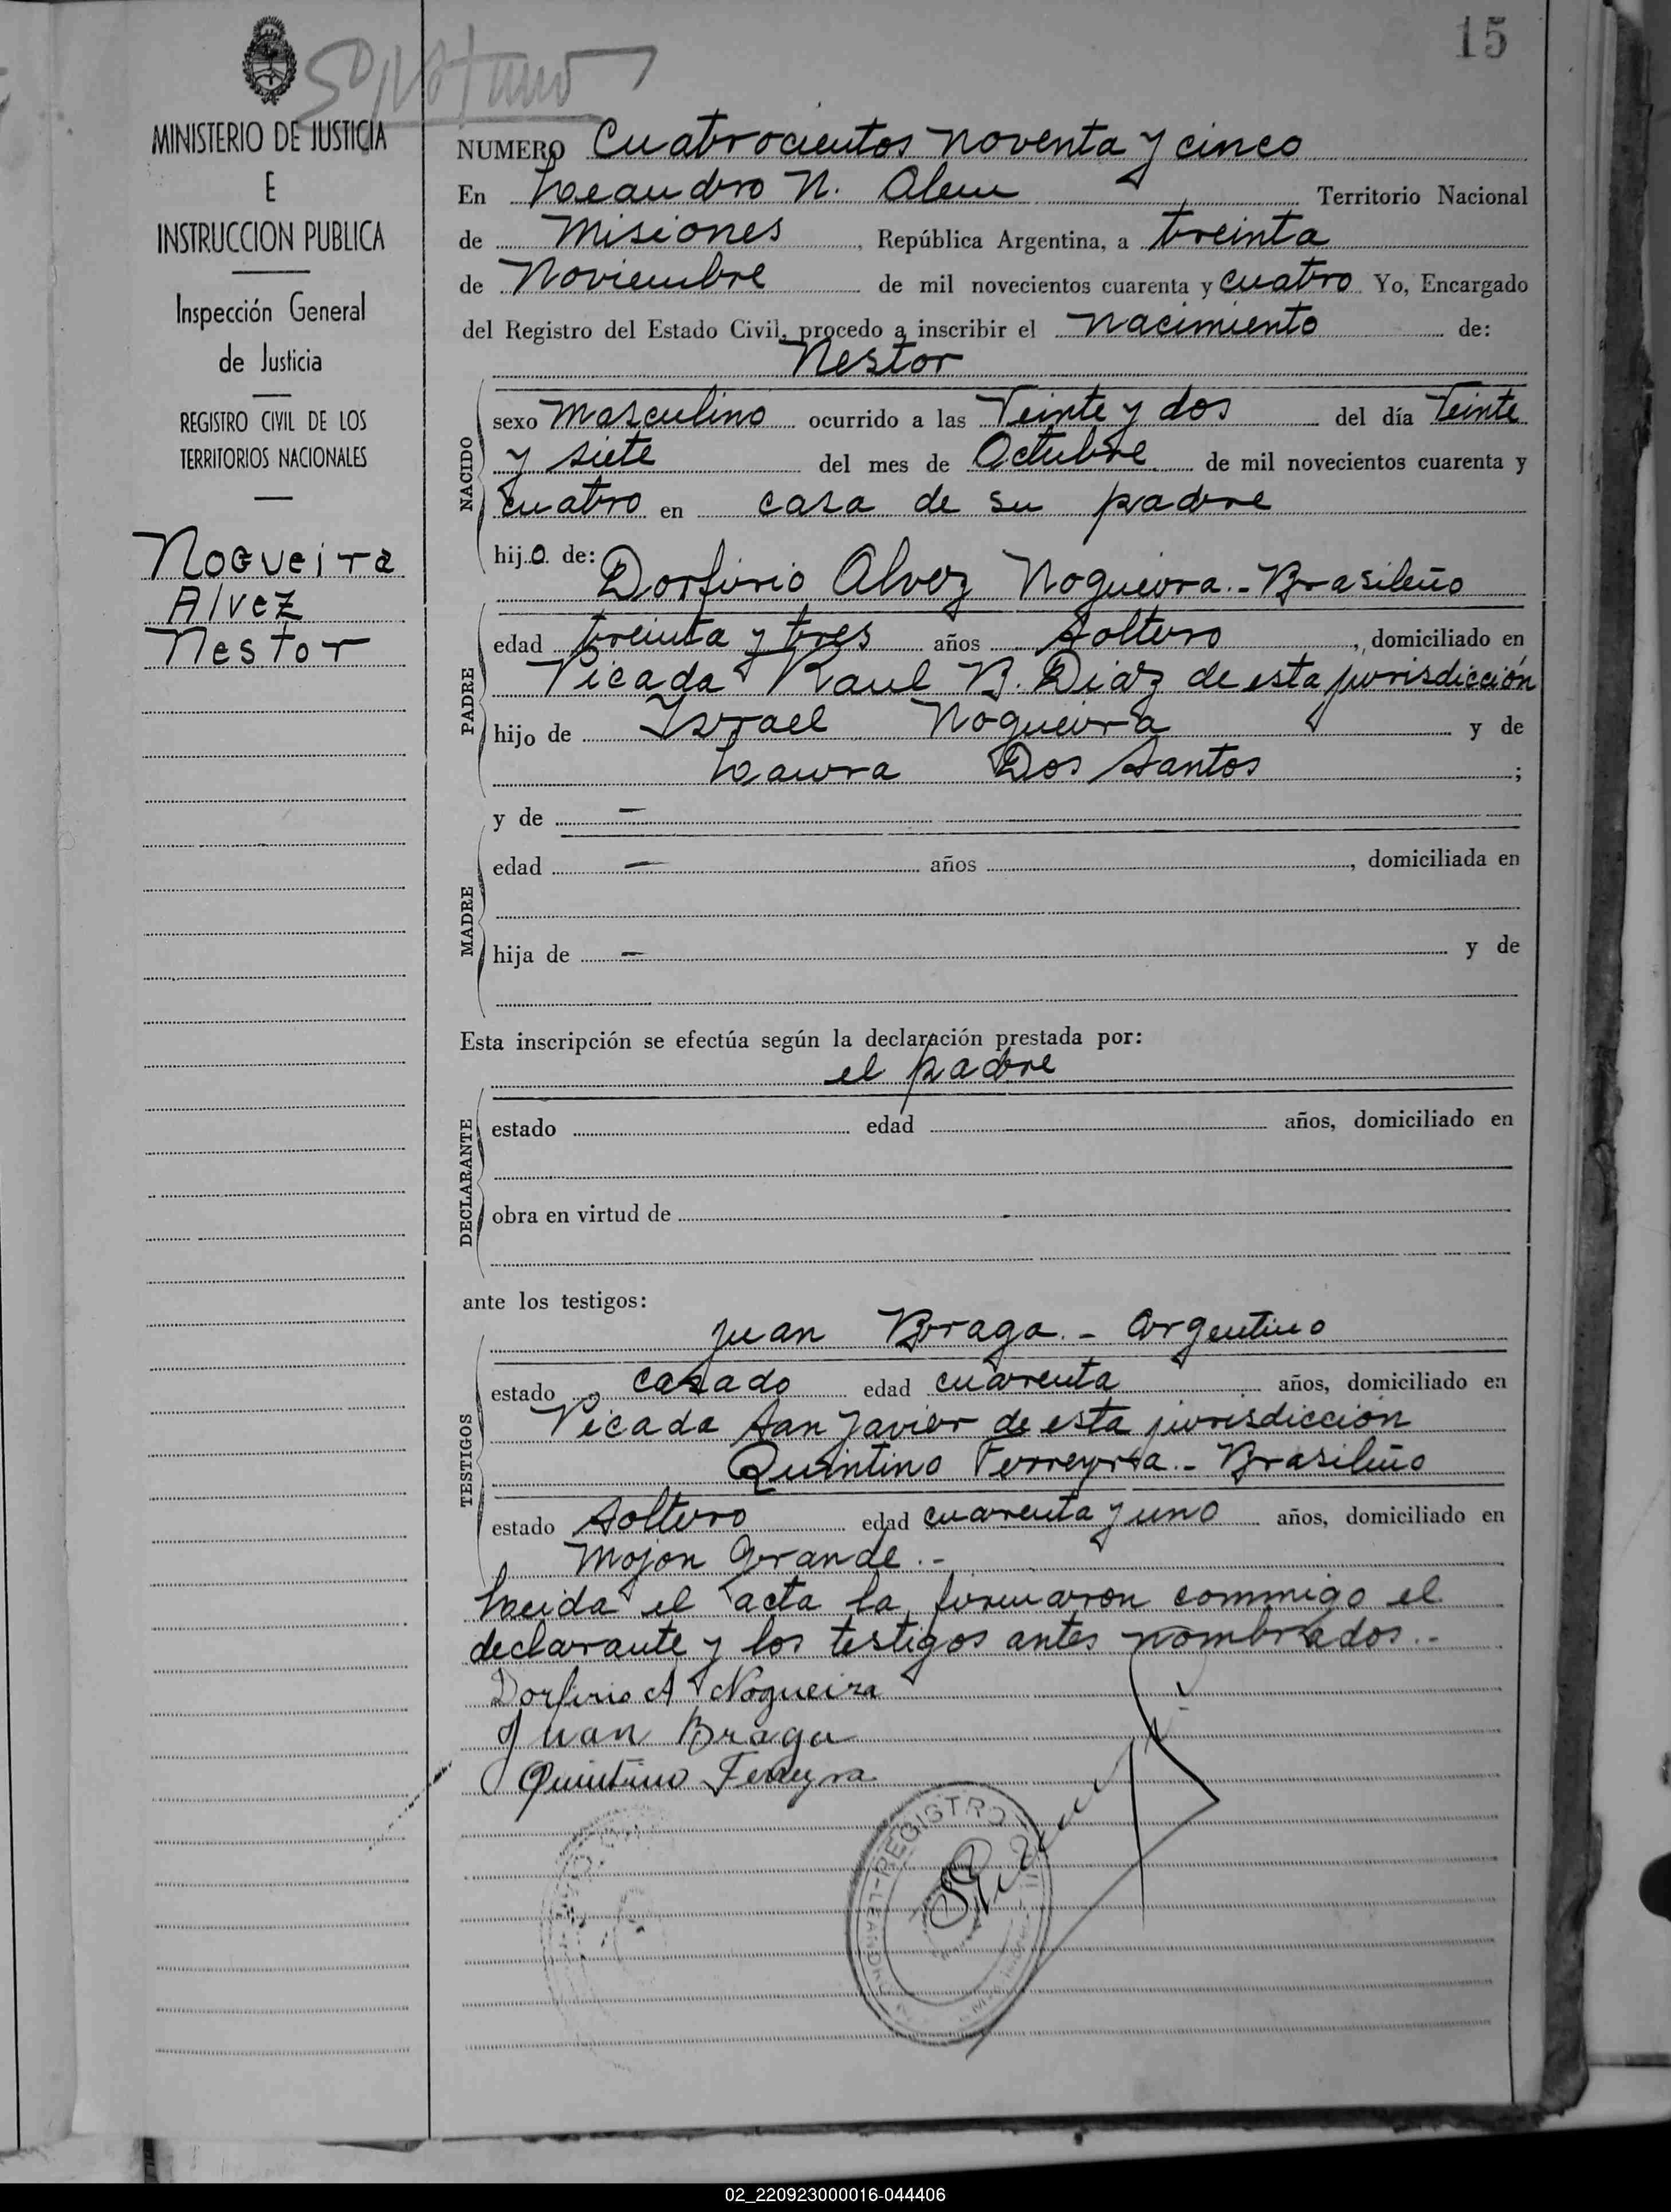 15
MINISTERIO DE JUSTICIA
E
INSTRUCCION PUBLICA
Inspección General
de Justicia
REGISTRO CIVIL DE LOS
TERRITORIOS NACIONALES
Nogueira
Alvez
Nestor
NUMERO Cuatrocientos noventa y cinco
En Leandro N. Alem Territorio Nacional
de Misiones, República Argentina, a treinta
de Noviembre de mil novecientos cuarenta y cuatro Yo, Encargado
del Registro del Estado Civil, procedo a inscribir el nacimiento de:
Nestor
NACIDO
sexo masculino ocurrido a las Veinte y dos del día Veinte
y siete del mes de Octubre de mil novecientos cuarenta y
cuatro en casa de su padre
hijo de:
Dorfirio Alvez Nogueira.- Brasileño
PADRE
edad treinta y tres años Soltero, domiciliado en
Picada Raul B. Diaz de esta jurisdicción
hijo de Israel Nogueira y de
Laura Dos Santos ;
MADRE
y de —
edad — años , domiciliada en
hija de — y de
Esta inscripción se efectúa según la declaración prestada por:
el padre
DECLARANTE
estado edad años, domiciliado en
obra en virtud de
ante los testigos:
Juan Braga.- Argentino
TESTIGOS
estado casado edad cuarenta años, domiciliado en
Picada San Javier de esta jurisdicción
Quintino Ferreyra.- Brasileño
estado Soltero edad cuarenta y uno años, domiciliado en
Mojon Grande.-
Leida el acta la firmaron commigo el
declarante y los testigos antes nombrados.-
Dorfirio A Nogueira
Juan Braga
Quintino Ferreyra
REGISTRO
02_220923000016-044406